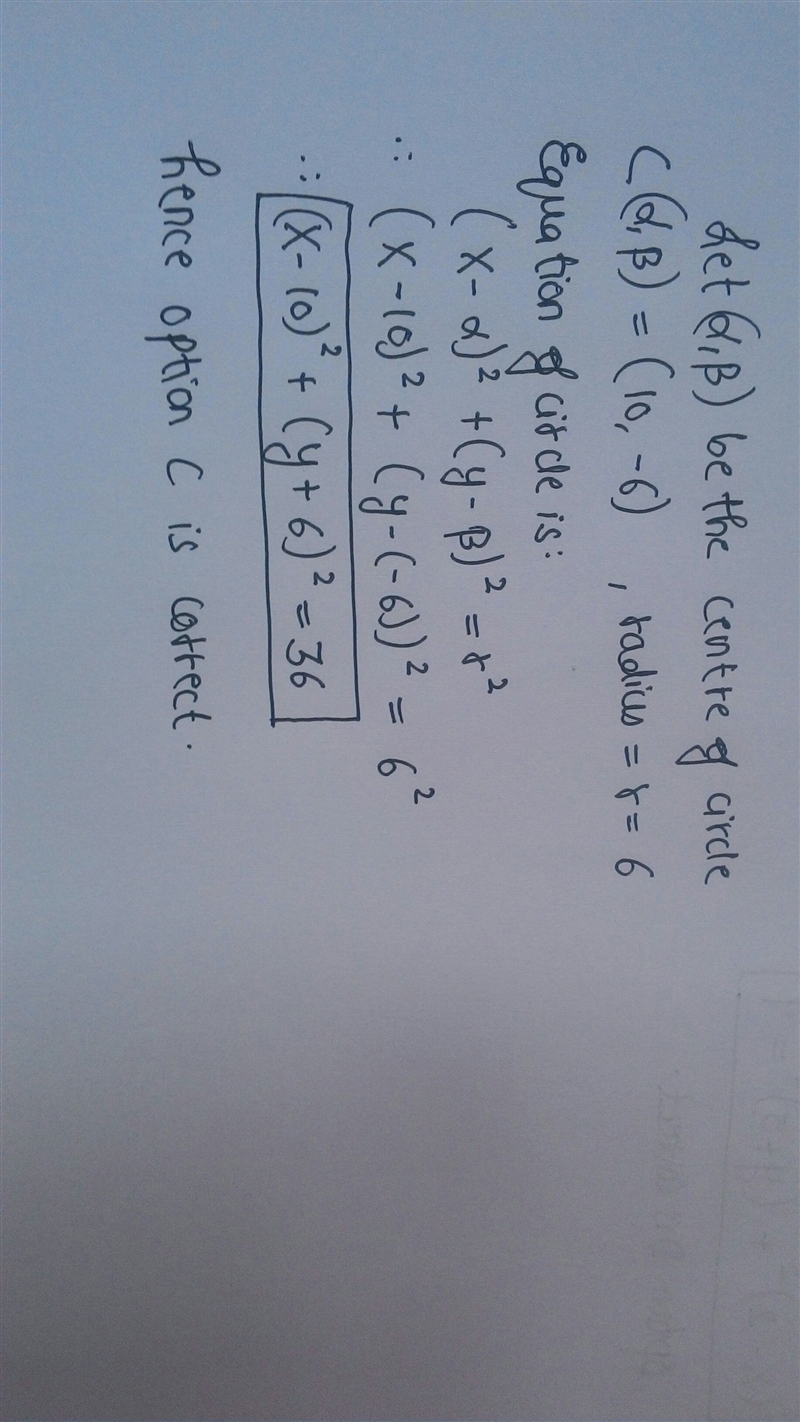 Let (α,β) be the centre of circle
C(α,β) = (10,-6) , radius = r = 6
Equation of circle is:
(x-α)² + (y-β)² = r²
∴ (x-10)² + (y-(-6))² = 6²
∴ (x-10)² + (y+6)² = 36
hence option C is correct.